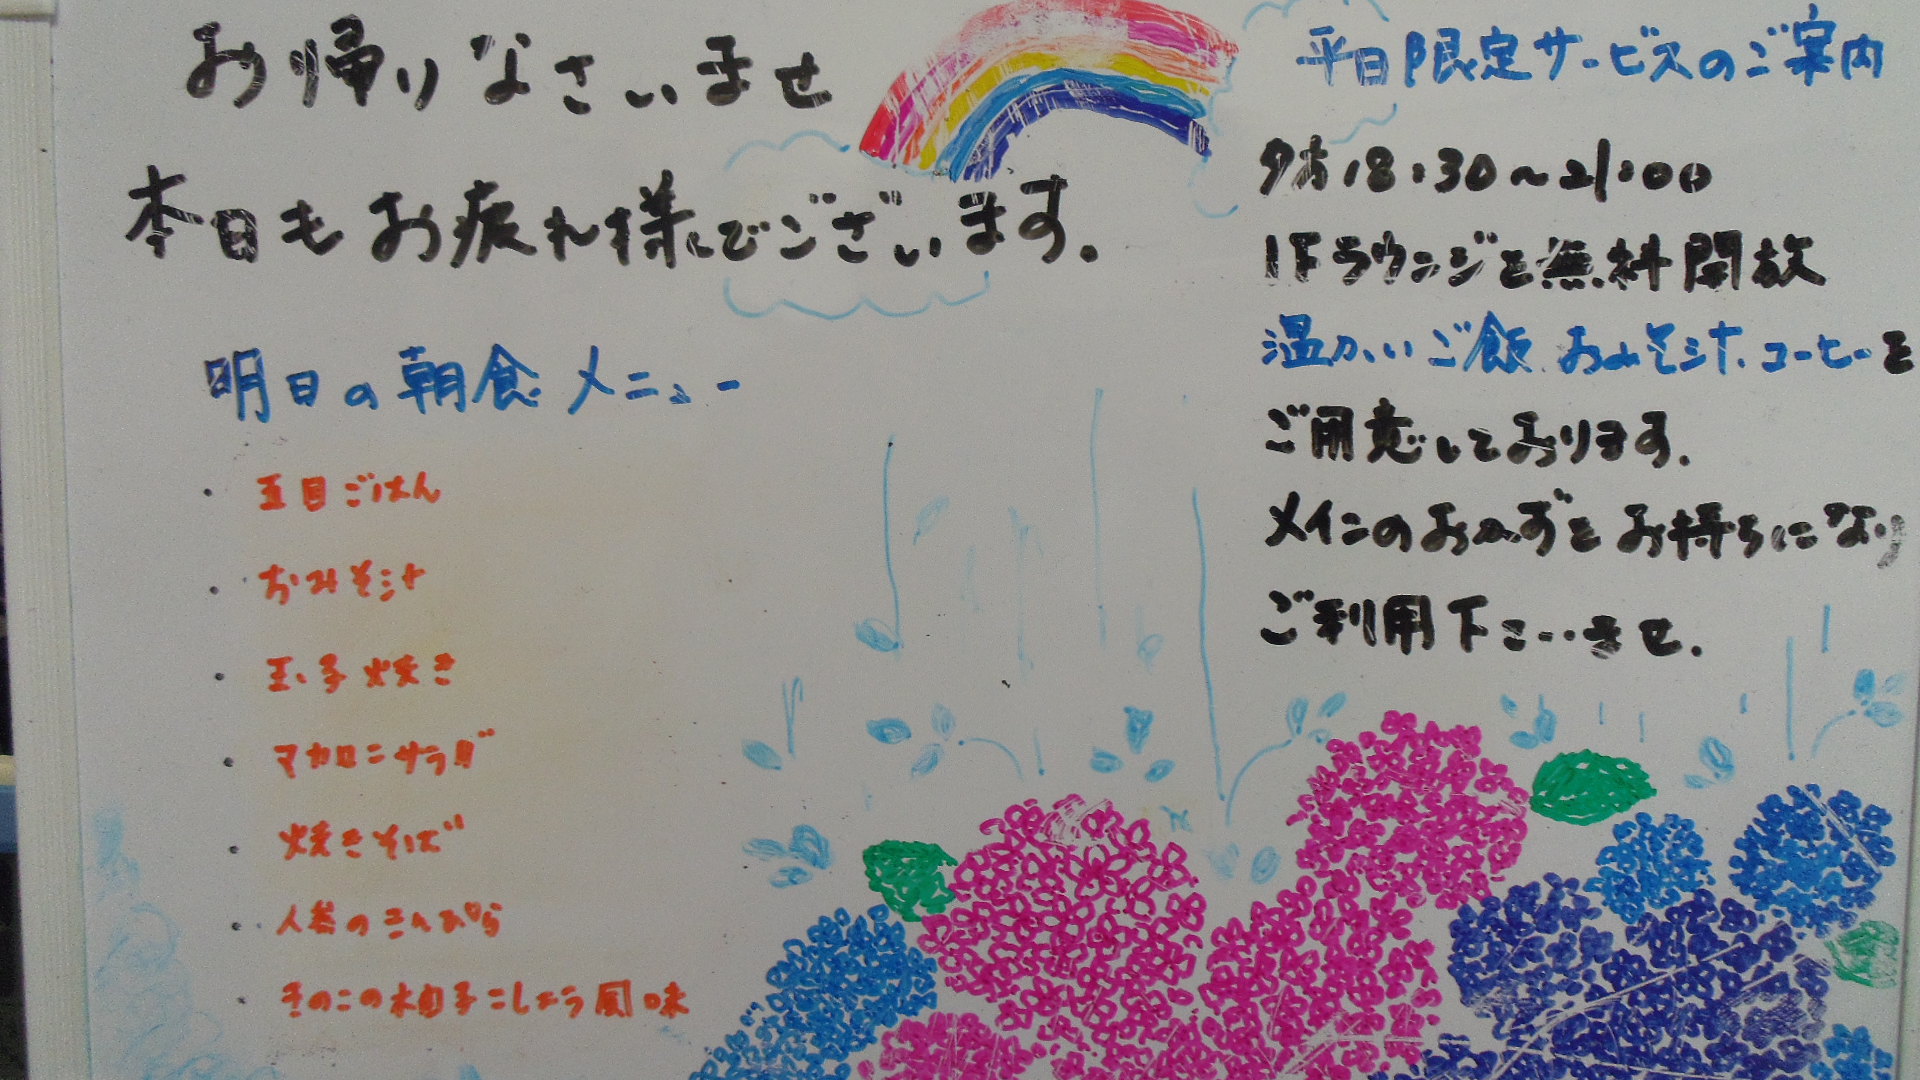 お帰りなさいませ
本日もお疲れ様でございます。
明日の朝食メニュー
・五目ごはん
・おみそ汁
・玉子焼き
・マカロニサラダ
・焼きそば
・人参のきんぴら
・きのこの柚子こしょう風味
平日限定サービスのご案内
夕方18:30〜21:00
1Fラウンジを無料開放
温かいご飯、おみそ汁、コーヒーを
ご用意しております。
メインのおかずをお持ちになり
ご利用下さいませ。